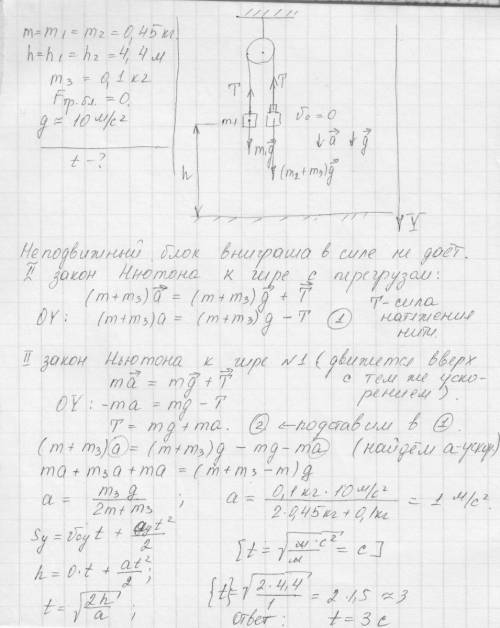 m = m₁ = m₂ = 0,45 кг.
h = h₁ = h₂ = 4,4 м
m₃ = 0,1 кг
Fтр.бл. = 0.
g ≈ 10 м/с²
t - ?
T T
m₁ v₀ = 0
m₁g⃗ a⃗ g⃗
(m₂+m₃)g⃗
h
Y
Неподвижный блок выиграша в силе не даёт.
II закон Нютона к гире с перегрузом:
(m+m₃)a⃗ = (m+m₃)g⃗ + T⃗ T - сила
OY: (m+m₃)a = (m+m₃)g - T ① натяжения
нити.
II закон Ньютона к гире №1 (движется вверх
ma⃗ = mg⃗ + T⃗ с тем же уско-
OY: -ma = mg - T рением).
T = mg + ma. ② ← подставим в ①.
(m+m₃)a = (m+m₃)g - mg - ma (найдём a-ускор)
ma + m₃a + ma = (m+m₃-m)g
a = m₃g / (2m+m₃) ; a = 0,1 кг · 10 м/с² / (2·0,45 кг + 0,1 кг) = 1 м/с².
Sy = v₀y t + ayt²/2 [t = √(м·с²/м) = с]
h = 0·t + at²/2;
t = √(2h/a) ; {t} = √(2·4,4/1) = 2·1,5 ≈ 3
Ответ: t = 3 с